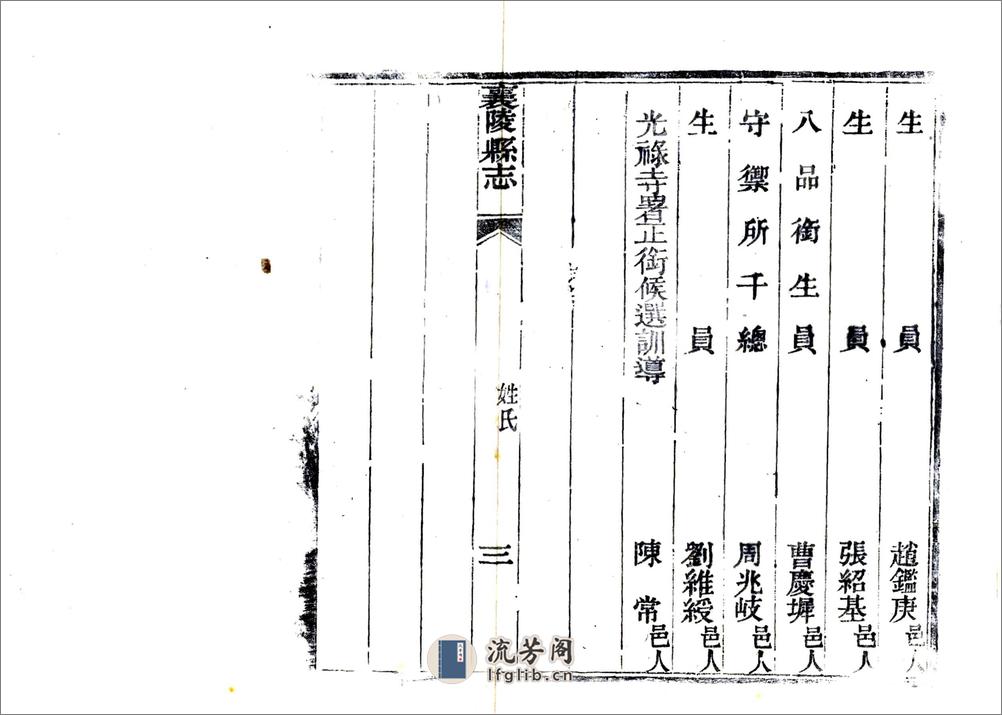 生員　趙鑑庚邑人
生員　張紹基邑人
八品銜生員　曹慶墀邑人
守禦所千總　周兆岐邑人
生員　劉維綬邑人
光祿寺署正銜候選訓導　陳常邑人
襄陵縣志　姓氏　三
流芳阁
lfglib.cn